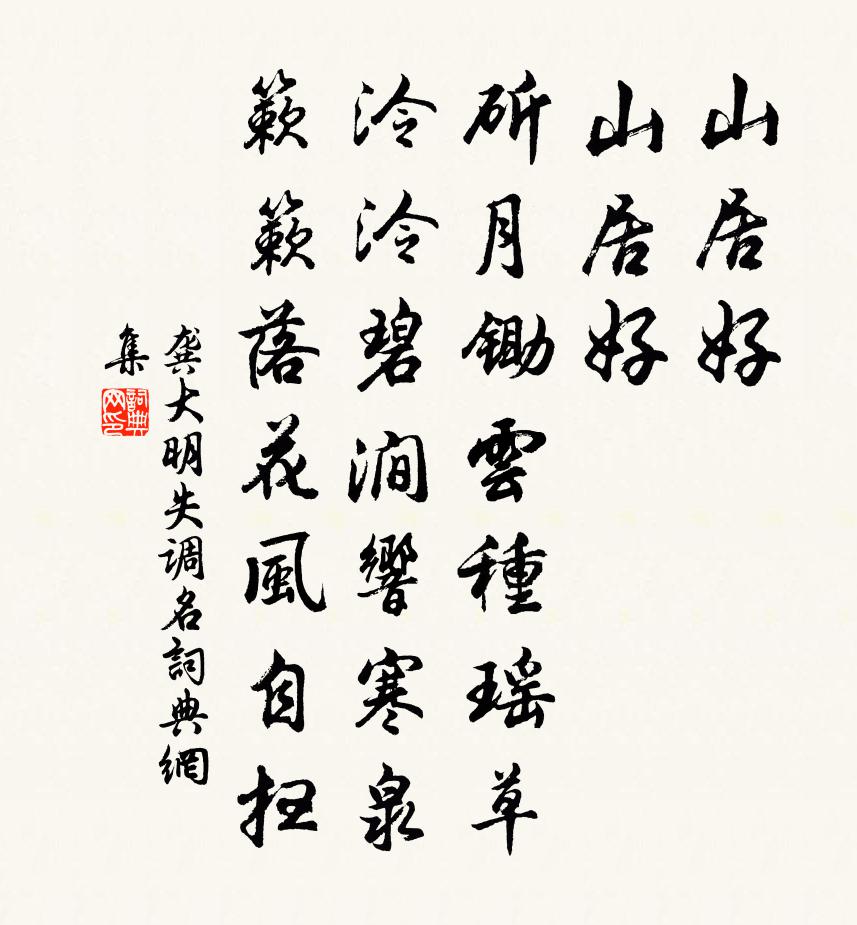 山居好
山居好
斫月鋤雲種瑶草
泠泠碧澗響寒泉
簌簌落花風自扫
龚大明失调名詞典網
集
詞典
网印